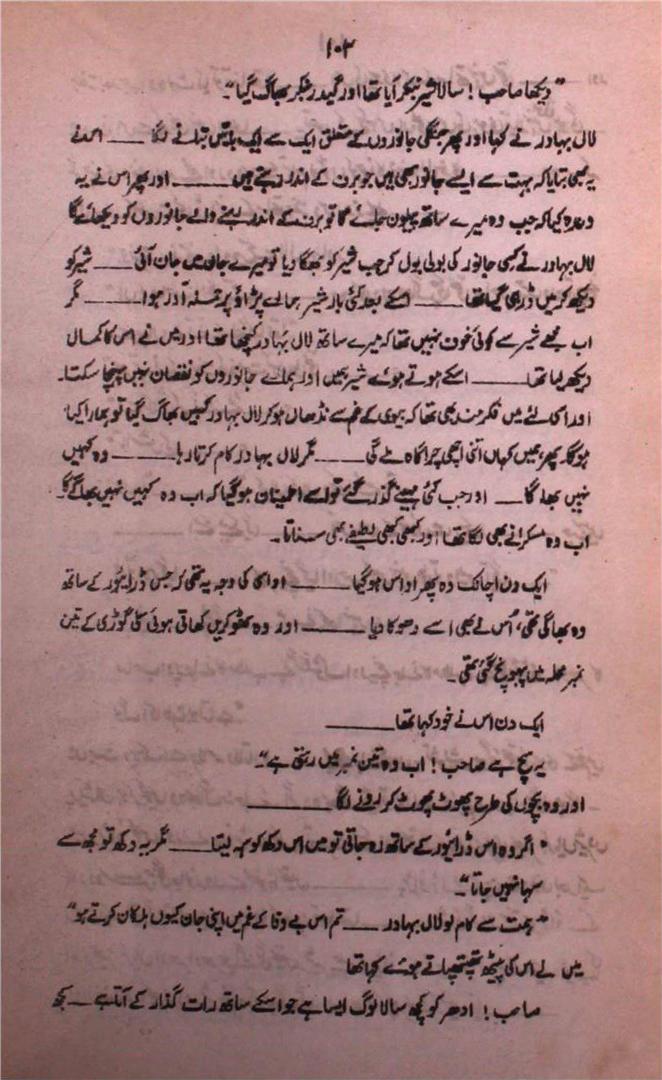 ۱۰۳
"دیکھا صاحب! سالا شیر بنکر آیا تھا اور گیدڑ بنکر بھاگ گیا"۔
لال بہادر نے کہا اور پھر جنگلی جانوروں کے متعلق ایک سے ایک باتیں بتانے لگا ــــ اس نے
یہ بھی بتایا کہ بہت سے ایسے جانور بھی ہیں جو برف کے اندر رہتے ہیں ــــ اور پھر اس نے یہ
وعدہ کیا کہ جب وہ میرے ساتھ پہلون جائے گا تو برف کے اندر بسنے والے جانوروں کو دیکھائے گا
لال بہادر نے کسی جانور کی بولی بول کر جب شیر کو بھگا دیا تو میرے جان میں جان آئی ــــ شیر کو
دیکھ کر میں ڈر ہی گیا تھا ــــ اسکے بعد کئی بار شیر ہمارے پڑاؤ پر حملہ آور ہوا ــــ مگر
اب مجھے شیر سے کوئی خوف نہیں تھا کہ میرے ساتھ لال بہادر کنچھا تھا اور میں نے اس کا کمال
دیکھ لیا تھا ــــ اسکے ہوتے ہوئے شیر ہمیں اور ہمارے جانوروں کو نقصان نہیں پہنچا سکتا۔
اور اسی لئے میں فکر مند بھی تھا کہ بیوی کے غم سے نڈھال ہو کر لال بہادر کہیں بھاگ گیا تو ہمارا کیا
ہوگا۔ پھر ہمیں کہاں اتنی اچھی چراگاہ ملے گی ــــ مگر لال بہادر کام کرتا رہا ــــ وہ کہیں
نہیں بھاگا ــــ اور جب کئی مہینے گذر گئے تو اسے اطمینان ہو گیا کہ اب وہ کہیں نہیں بھاگے گا۔
اب وہ مسکرانے بھی لگا تھا اور کبھی کبھی لطیفے بھی سناتا۔
ایک دن اچانک وہ پھر اداس ہو گیا ــــ اور اسی کی وجہ یہ تھی کہ جس ڈرائیور کے ساتھ
وہ بھاگی تھی، اُس نے بھی اسے دھوکا دیا ــــ اور وہ ٹھوکریں کھاتی ہوئی سلی گوڑی کے تین
نمبر محلہ میں پہونچ گئی تھی۔
ایک دن اس نے خود کہا تھا ــــ
یہ سچ ہے صاحب! اب وہ تین نمبر میں رہتی ہے"۔
اور وہ بچوں کی طرح پھوٹ پھوٹ کر رونے لگا ــــ
"اگر وہ اس ڈرائیور کے ساتھ رہ جاتی تو میں اس دکھ کو سہہ لیتا ــــ مگر یہ دکھ تو مجھ سے
سہا نہیں جاتا"۔
"ہمت سے کام لو لال بہادر ــــ تم اس بے وفا کے غم میں اپنی جان کیوں ہلکان کرتے ہو"
میں نے اس کی پیٹھ تھپتھپاتے ہوئے کہا تھا
صاحب! ادھر کو کچھ سالا لوگ ایسا ہے جو اسکے ساتھ رات گذار کے آتا ہے ــــ کچھ